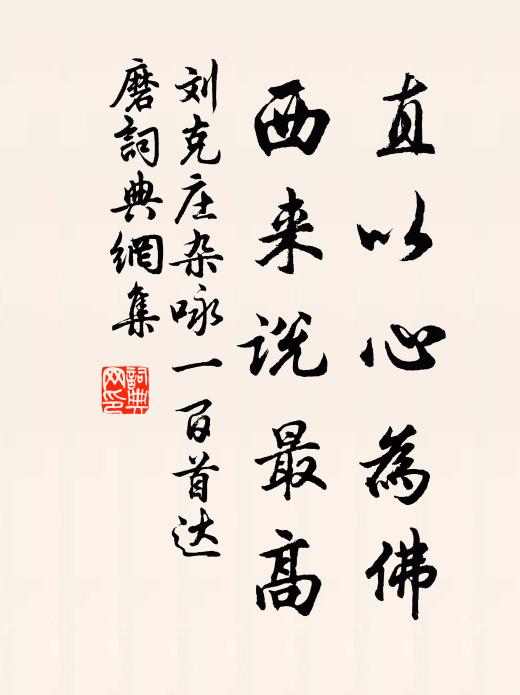 直以心為佛
西来说最高
刘克庄杂咏一百首达
磨詞典網集
詞典
网印